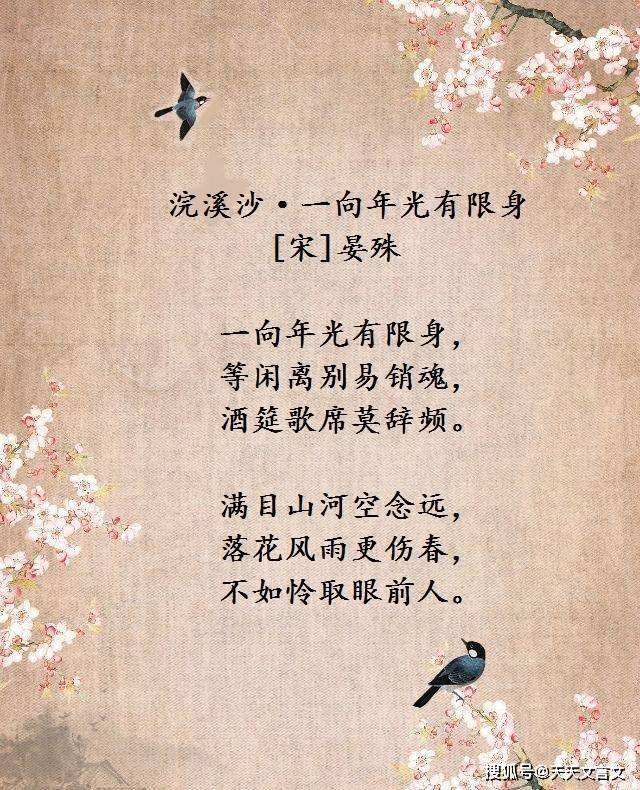 浣溪沙·一向年光有限身
[宋]晏殊
一向年光有限身，
等闲离别易销魂，
酒筵歌席莫辞频。
满目山河空念远，
落花风雨更伤春，
不如怜取眼前人。
搜狐号@天天文言文